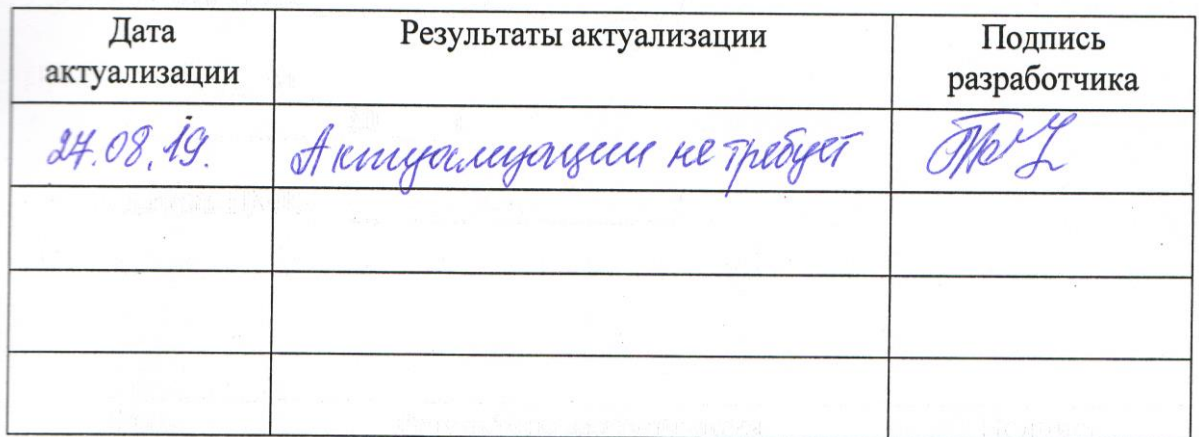 Дата актуализации
Результаты актуализации
Подпись разработчика
27.08.19.
Актуализации не требует